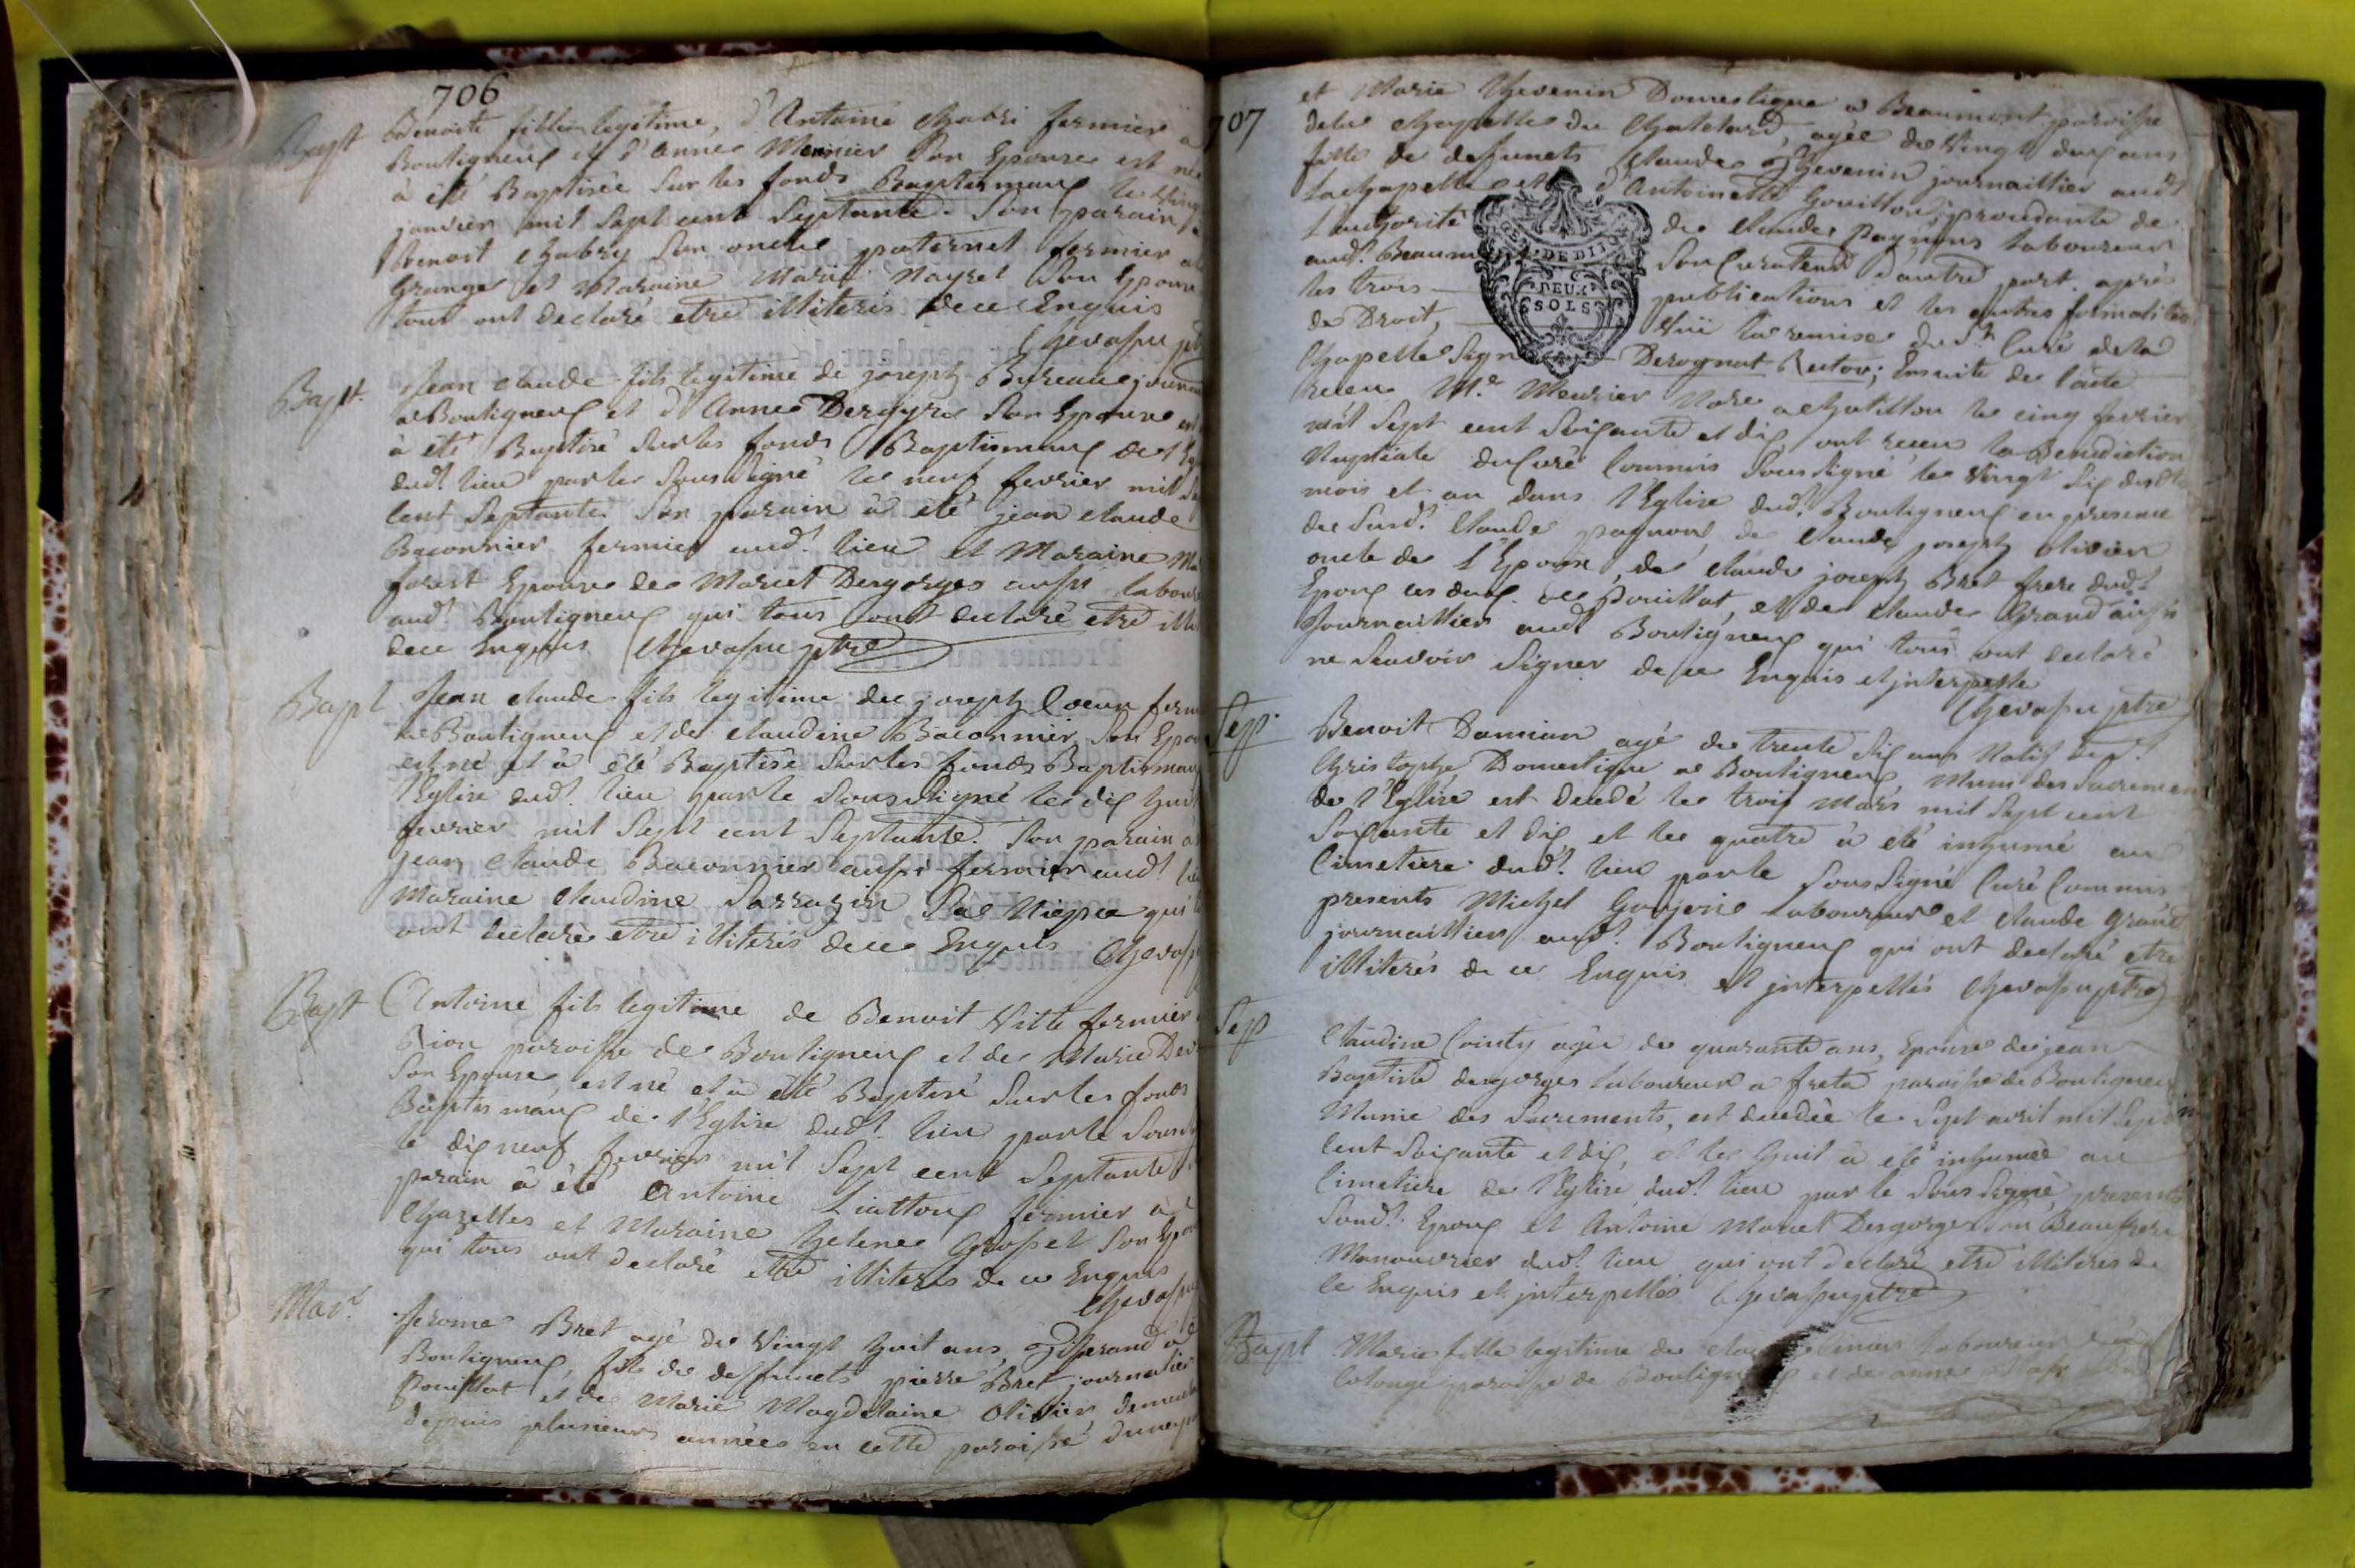 706
Bapt Benoite fille legitime, d'Antoine Chabri fermier a
Boutigneux et d'Anne Monnier son Epouse est née
à été Baptisée sur les fonds Baptismaux le vingt
janvier mil sept cent septante. Son parain
Benoit Chabry son oncle paternel fermier a
Grange et Maraine Marie Nayret son Epouse
tous ont declaré etre illiterés de ce Enquis
Chevassu ptre
Bapt. Jean Claude fils legitime de joseph Bureau journa
a Boutigneux et d'Anne Derayre son Epouse est
à été Baptisé sur les fonds Baptismaux de l'Eg
dud.t lieu par le soussigné le neuf fevrier mil se
cent septante. Son parain à été jean Claude
Baconnier fermier aud.t lieu et Maraine Ma
forest Epouse de Marcel Desgorges aussi laboure
aud.t Boutigneux qui tous ont declaré etre illi
de ce Enquis Chevassu ptre
Bapt Jean Claude fils legitime de joseph Coeur ferm
a Boutigneux et de Claudine Baconnier son Epou
est né et à été Baptisé sur les fonds Baptismau
l'Eglise dud.t lieu par le soussigné le dix huit
fevrier mil sept cent septante. Son parain à
jean Claude Baconnier aussi fermier aud.t lieu
Maraine Claudine Sarrazin sa Niepce qui
ont declaré etre illiterés de ce Enquis Chevass
Bapt Antoine fils legitime de Benoit Ville fermier
Rion paroisse de Boutigneux et de Marie Der
son Epouse, est né et à été Baptisé sur les fonds
Baptismaux de l'Eglise dud.t lieu par le souss
le dix neuf fevrier mil sept cent septante
parain à été Antoine Liattoux fermier à
Chazelles et Maraine helene Grosset son Epou
qui tous ont declaré etre illiterés de ce Enquis
Chevassu
Mar. Jerome Bret agé de vingt huit ans, Tisserand à
Boutigneux, fils de deffuncts pierre Bret journalier
Pouillat et de Marie Magdelaine Olivier demeu
depuis plusieurs années en cette paroisse d'une p
707
et Marie Thevenin Domestique a Beaumont paroisse
de la Chapelle du Chatelard, agée de vingt deux ans
fille de defuncts Claude Thevenin journaillier aud.t
la Chapelle et d'Antoinette Gouillon, procedante de
l'authorité de Claude Pagnons laboureur
aud.t Beaum son Curateur d'autre part. après
les trois publications et les autres formalités
de Droit, Vüe la remise du S.r Curé de la
Chapelle signé Derognat Rector; Ensuite de l'acte
receu M.e Meurier No.re a Chatillon le cinq fevrier
mil sept cent soixante et dix ont receu la Benediction
Nuptiale du Curé Commis soussigné le vingt six desd.
mois et an dans l'Eglise dud.t Boutigneux en presence
du susd.t Claude pagnon, de Claude joseph olivier
oncle de l'Epoux, de Claude joseph Bret frere dud.t
Epoux ces deux de Pouillat, et de Claude Grand aussi
Journaillier aud.t Boutigneux qui tous ont declaré
ne sçavoir signer de ce Enquis et interpellé
Chevassu ptre
Sep. Benoit Damian agé de trente six ans Natif de S.t
Christophe Domestique a Boutigneux Muni des sacremen
de l'Eglise est decedé le trois Mars mil sept cent
soixante et dix et le quatre à été inhumé au
Cimetiere dud.t lieu par le soussigné Curé Commis
presents Michel Gorjerie laboureur et Claude Grand
journaillier aud.t Boutigneux qui ont declaré etre
illiterés de ce Enquis et interpellés Chevassu ptre
Sep Claudine Cointy agée de quarante ans, Epouse de jean
Baptiste desgorges laboureur a freta paroisse de Boutigneux
Munie des sacrements, est decedée le sept avril mil sept
cent soixante et dix, et le huit à été inhumée au
Cimetiere de l'Eglise dud.t lieu par le soussigné, presents
sond.t Epoux et Antoine Marcel Desgorges son Beaufrere
Manouvrier dud.t lieu qui ont declaré etre illiterés de
ce Enquis et interpellés Chevassu ptre
Bapt Marie fille legitime de laboureur
Colonge paroisse de Boutign et de anne
DEUX
SOLS